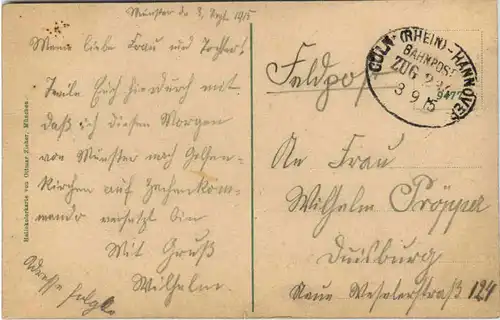 Münster de 3. Sept. 1915
Meine liebe Frau und Tochter!
Teile Euch hierdurch mit
daß ich diesen Morgen
von Münster nach Gelsen-
kirchen auf Zechenkom-
mando versetzt bin
Mit Gruß
Wilhelm
Adresse folgt
Nationalerkarte von Ottmar Zieher, München.
Feldpost
CÖLN (RHEIN) - HANNOVER
BAHNPOST
ZUG
3 9 15
An Frau
Wilhelm Pröpper
Duisburg
Neue Weselerstraß 124